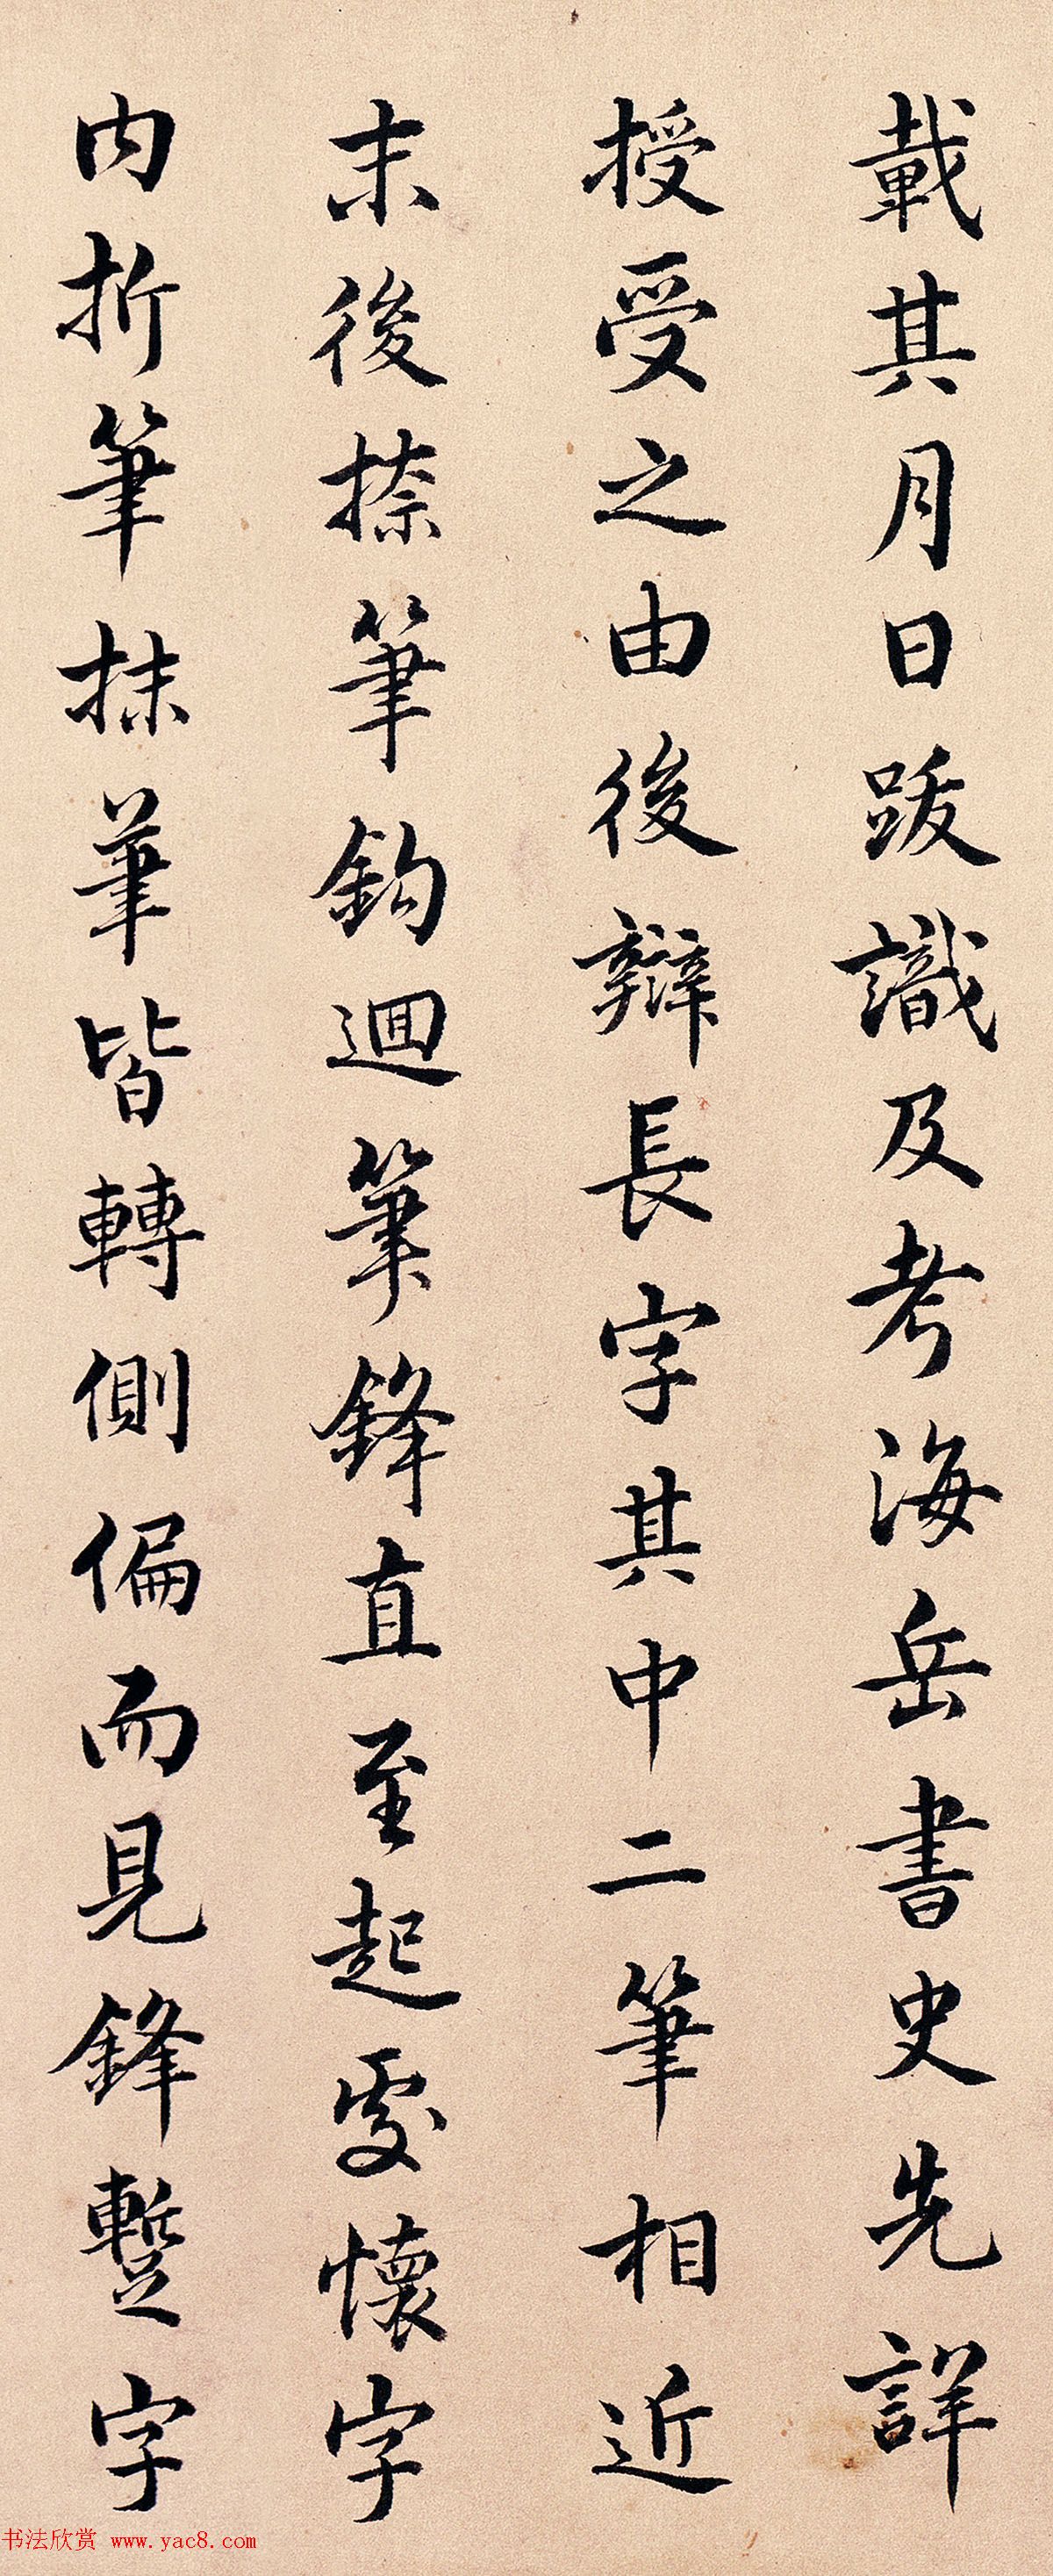 載其月日跋識及考海岳書史先詳
授受之由後辯長字其中二筆相近
末後捺筆鈎迴筆鋒直至起處懷字
内折筆抹筆皆轉側偏而見鋒蹔字
书法欣赏 www.yac8.com